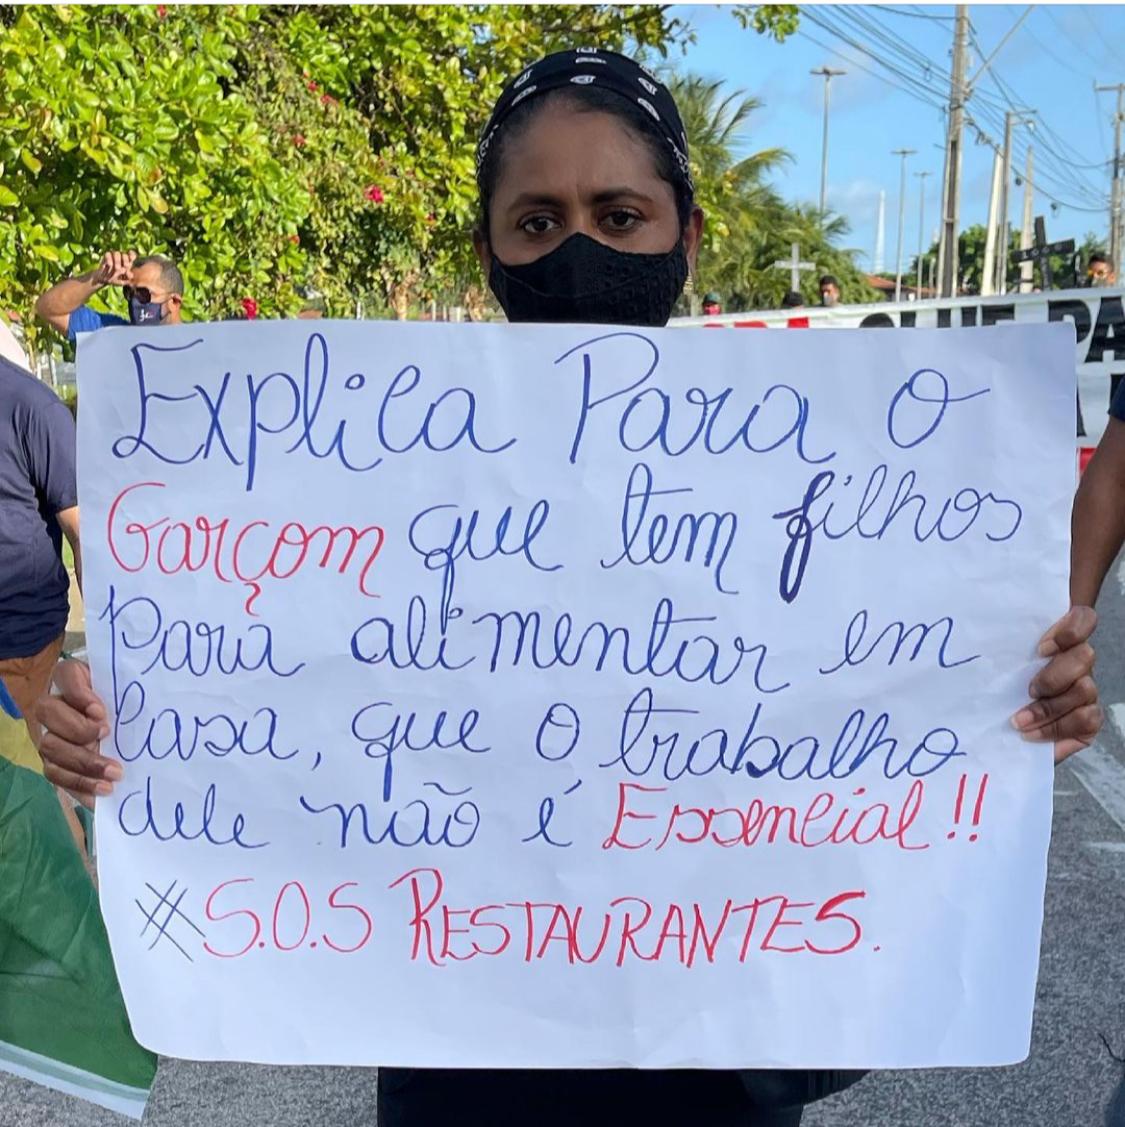 Explica Para o
Garçom que tem filhos
Para alimentar em
Casa, que o trabalho
dele não é Essencial!!
#S.O.S RESTAURANTES.